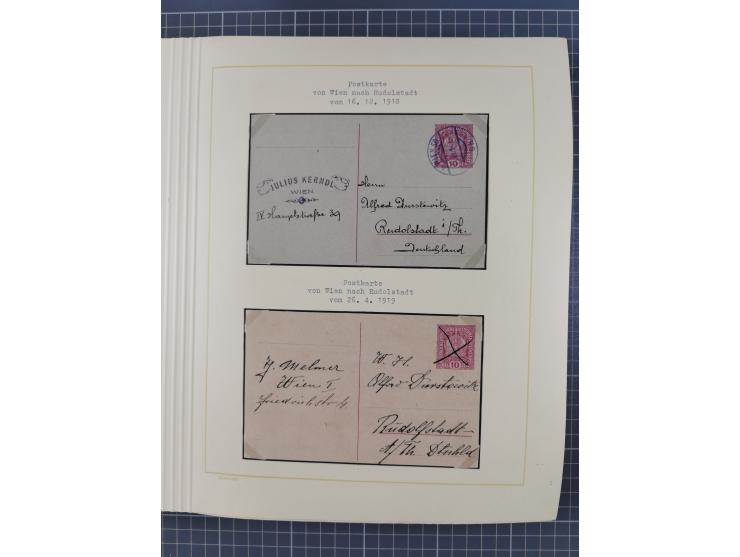 Postkarte
von Wien nach Rudolstadt
vom 16. 12. 1918
JULIUS KERNDL
WIEN
IV Hauptstraße 39
10
Herrn
Alfred Durstewitz
Rudolstadt i/Th.
Deutschland
Postkarte
von Wien nach Rudolstadt
vom 26. 4. 1919
J. Melmer
Wien I
10
W. H.
Alfred Durstewitz
Rudolfstadt
a/Th Dtschld